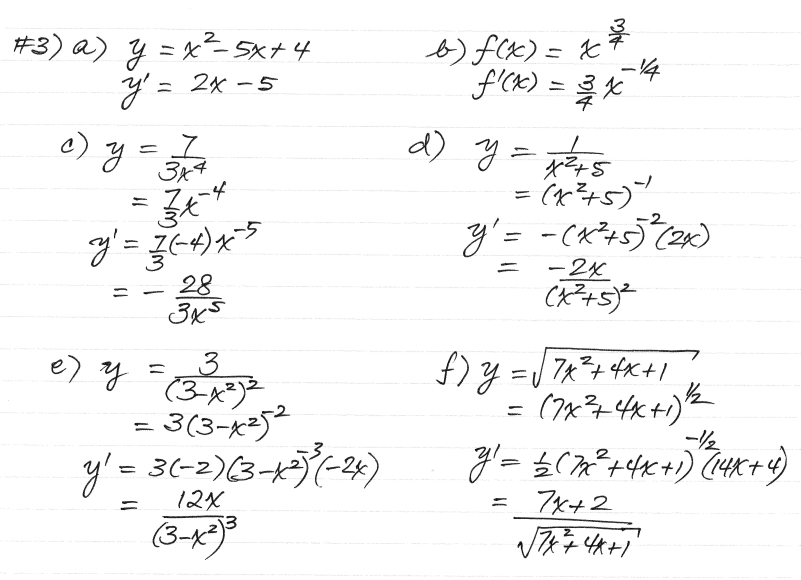 #3) a) y = x² - 5x + 4
y' = 2x - 5
b) f(x) = x^(3/4)
f'(x) = 3/4 x^(-1/4)
c) y = 7/(3x⁴)
= 7/3 x⁻⁴
y' = 7/3 (-4) x⁻⁵
= - 28/(3x⁵)
d) y = 1/(x²+5)
= (x²+5)⁻¹
y' = -(x²+5)⁻²(2x)
= -2x/(x²+5)²
e) y = 3/(3-x²)²
= 3(3-x²)⁻²
y' = 3(-2)(3-x²)⁻³(-2x)
= 12x/(3-x²)³
f) y = √(7x²+4x+1)
= (7x²+4x+1)^(1/2)
y' = 1/2 (7x²+4x+1)^(-1/2) (14x+4)
= (7x+2)/√(7x²+4x+1)